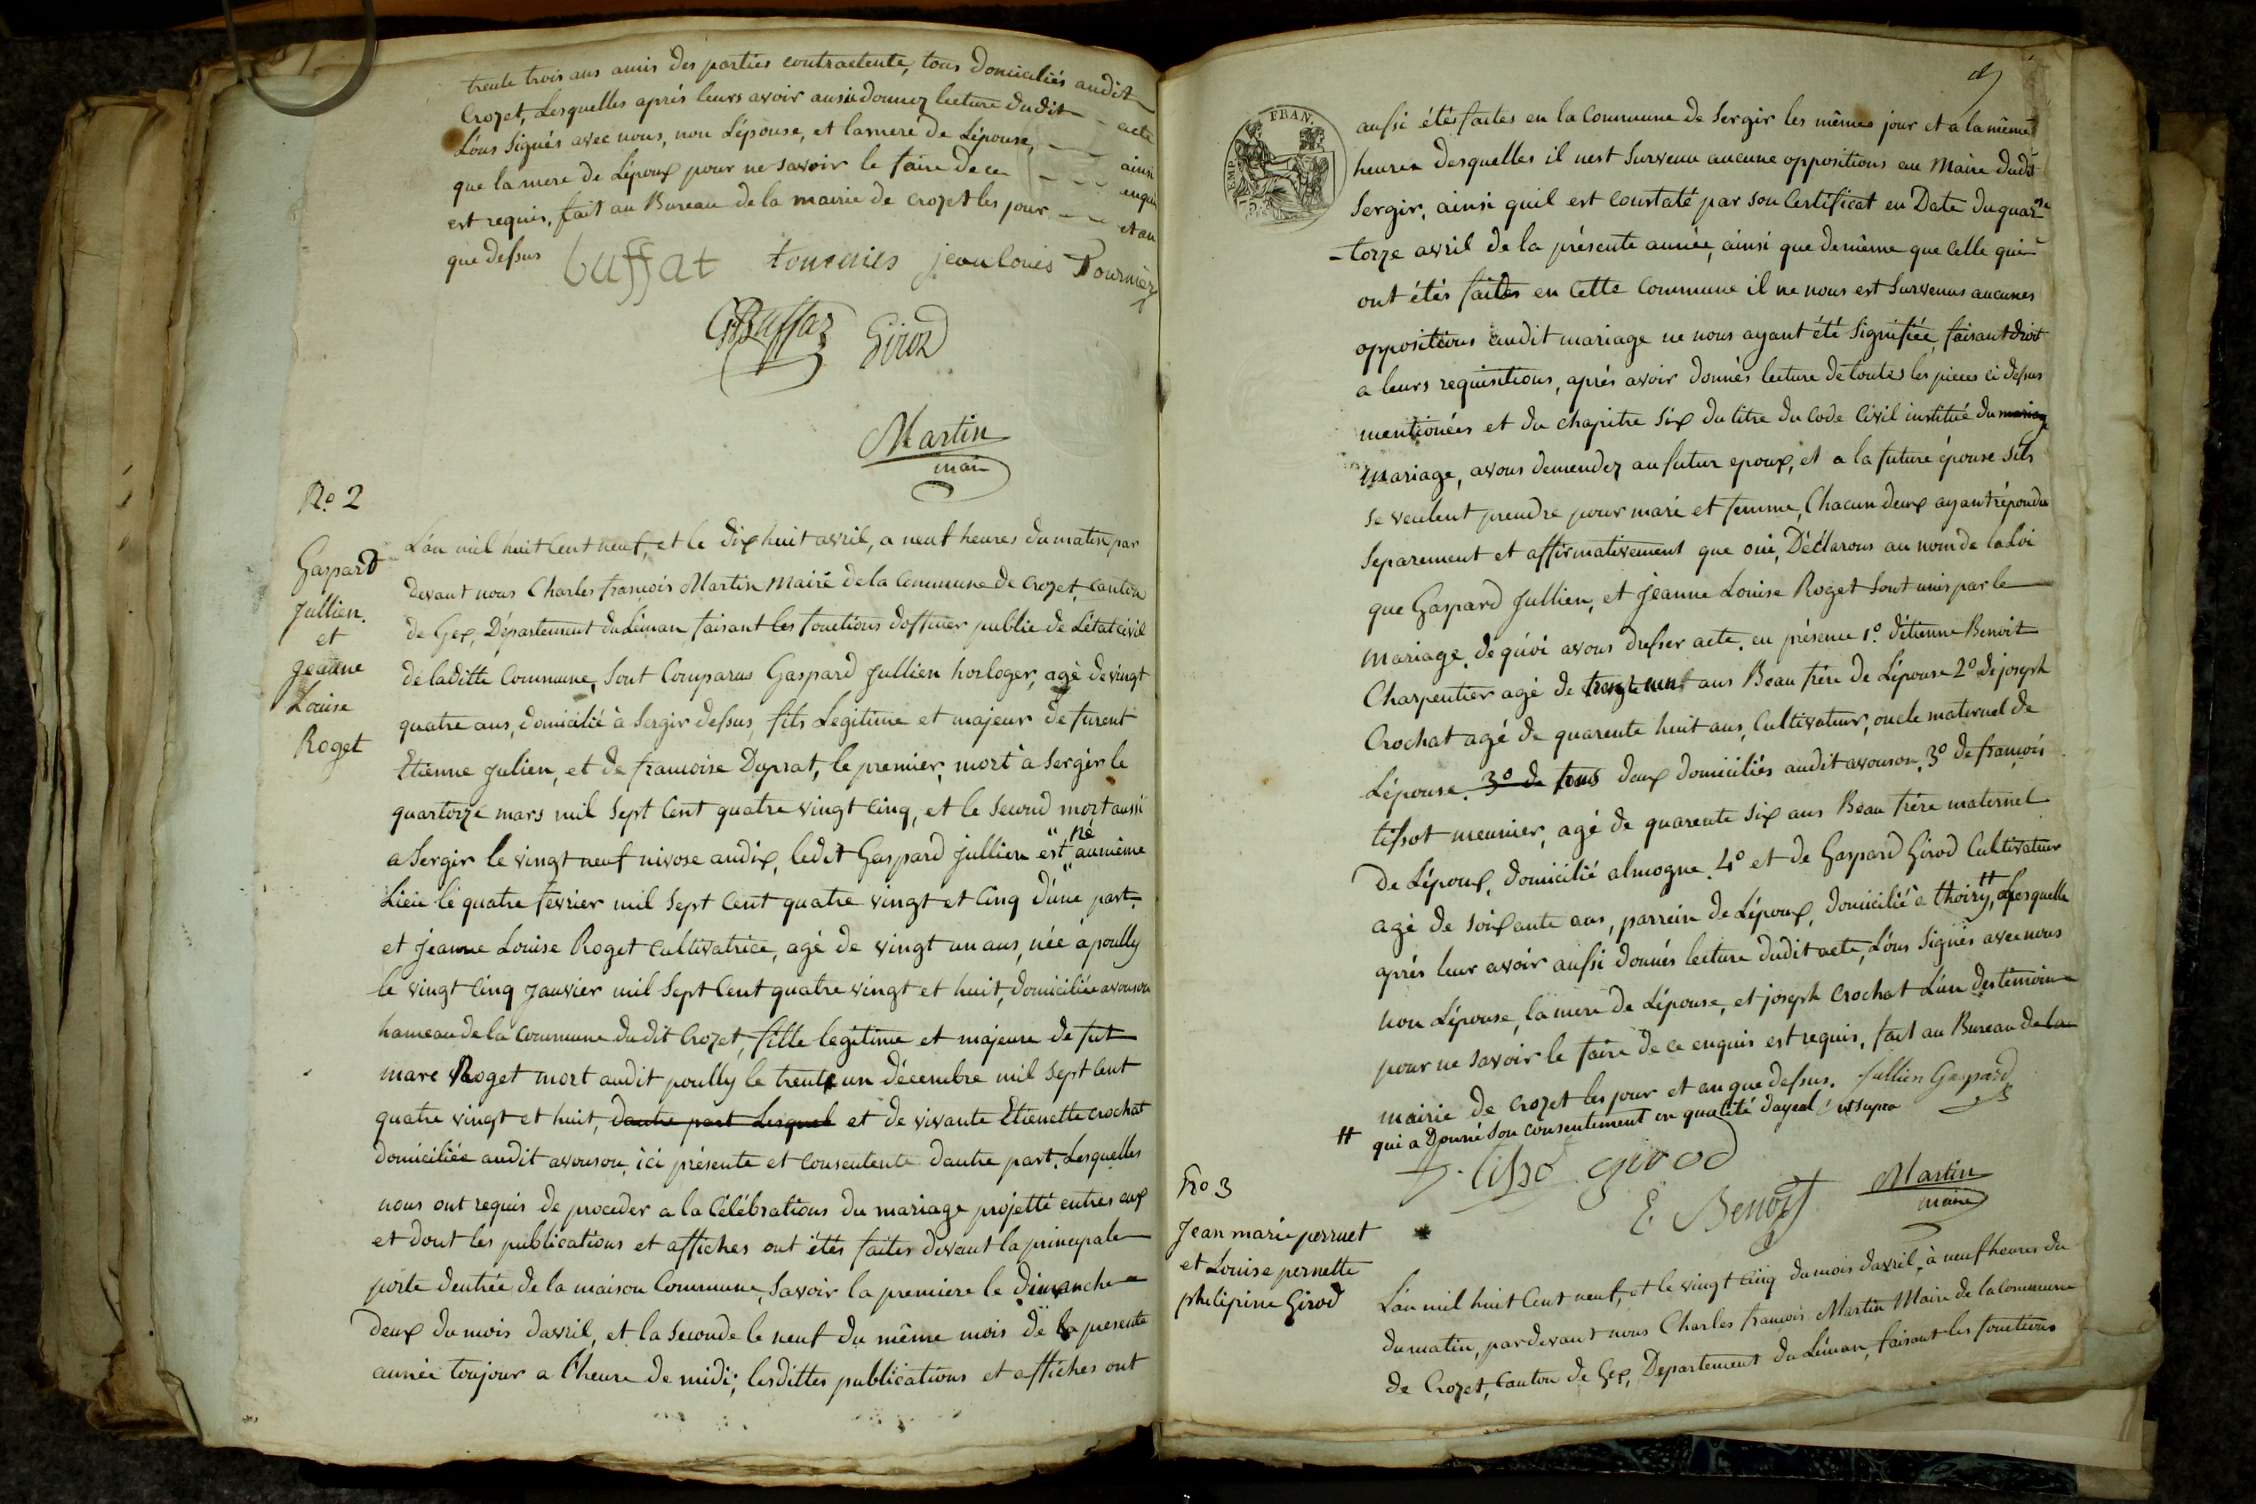 trente trois ans amis des parties contractente, tous domiciliés audit
Crozet, Lesquelles aprés leurs avoir ausi donnez lecture dudit - acte
L'ons Signés avec nous, non L'épouse, et lamere de L'épouse, - - ainsi
que la mere de L'époux pour ne savoir le faire de ce - - - enquis
est requis, fait au Bureau de la mairie de crozet les jour - - et an
que dessus
buffat tournies jean louis Tournier
Buffaz Girod
Martin
maire
No. 2
Gaspard
Jullien.
et
Jeanne
Louise
Roget
L'an mil huit Cent neuf, et le dix huit avril, a neuf heures du matin par
devant nous Charles francois Martin Maire de la Commune de Crozet, canton
de Gex, Département du Léman faisant les fonctions d'officier public de L'état civil
de laditte Commune, Sont Comparus Gaspard Jullien horloger, agé de vingt
quatre ans, domicilié à Sergir dessus, fils Legitime et majeur de furent
Etienne Julien, et de francoise Duprat, le premier, mort à Sergir le
quartorze mars mil Sept Cent quatre vingt Cinq, et le Second mort aussi
a Sergir le vingt neuf nivose an dix, ledit Gaspard Jullien est " né " au même
Lieu le quatre fevrier mil Sept Cent quatre vingt et Cinq d'une part.
et Jeanne Louise Roget Cultivatrice, agé de vingt un ans, née à poully
le vingt Cinq Janvier mil Sept Cent quatre vingt et huit, domiciliée avouson
hameau de la Commune dudit Crozet, fille legitime et majeure de fut
marc Roget mort audit poully le trente un décembre mil Sept Cent
quatre vingt et huit, dautre part Lesquel et de vivante Etienette crochat
domiciliée audit avouson, ici présente et consentente dautre part. Lesquelles
nous ont requis de proceder a la Célébrations du mariage projetté entres eux
et dont les publications et affiches ont étés faites devant la principale
porte dentrée de la maison Commune, Savoir la premiere le dimanche
deux du mois davril, et la seconde le neuf du même mois de la presente
année toujour a l'heure de midi; lesdittes publications et affiches ont
FRAN.
EMP.
aussi étés faites en la Commune de Sergir les mêmes jour et a la même
heures desquelles il n'est Survenu aucune oppositions au Maire dudit
Sergir, ainsi quil est constaté par son Certificat en Date du quar
-torze avril de la présente année, ainsi que de même que celle qui
ont étés faites en Cette Commune il ne nous est Survenus aucunes
oppositions audit mariage ne nous ayant été Signifiée, faisant droit
a leurs requisitions, aprés avoir donnés lecture de toutes les pieces ci dessus
mentionées et du chapitre Six du titre du Code Civil institué du mariage
Mariage, avons demendez au futur epoux, et a la future épouse Sils
se veulent prendre pour mari et femme, Chacun deux ayant répondu
Separement et affirmativement que oui, Déclarons au nom de la Loi
que Gaspard Jullien, et Jeanne Louise Roget Sont unis par le
Mariage. de quoi avons dresser acte. en présence 1o. détienne Benoit
Charpentier agé de ans Beau frére de L'épouse 2o de joseph
Crochat agé de quarente huit ans, Cultivateur, oncle maternel de
L'épouse. 3o de tous deux domiciliés audit avouson, 3o de francois
tissot meunier, agé de quarente Six ans Beau frére maternel
de L'époux, domicilié almogne. 4o et de Gaspard Girod Cultivateur
agé de soixante ans, parrein de L'époux, domicilié a thoiry, # Lesquelle
aprés leur avoir aussi donnés lecture dudit acte, L'ons Signés avec nous
non L'épouse, la mere de L'épouse, et joseph Crochat L'un des témoins
pour ne savoir le faire de ce enquis est requis, fait au Bureau de la
mairie de Crozet les jour et an que dessus. Jullien Gaspard
# qui a Donné Son consentement en qualité dayeul ut supra
f. tisso girod
E. Benoit Martin
maire
No 3
Jean marie perruet
et Louise pernette
philipine Girod
L'an mil huit Cent neuf, et le vingt cinq du mois davril, à neuf heures du
du matin, par devant nous Charles francois Martin Maire de la Commune
de Crozet, Canton de Gex, Departement du Léman, faisant les fonctions